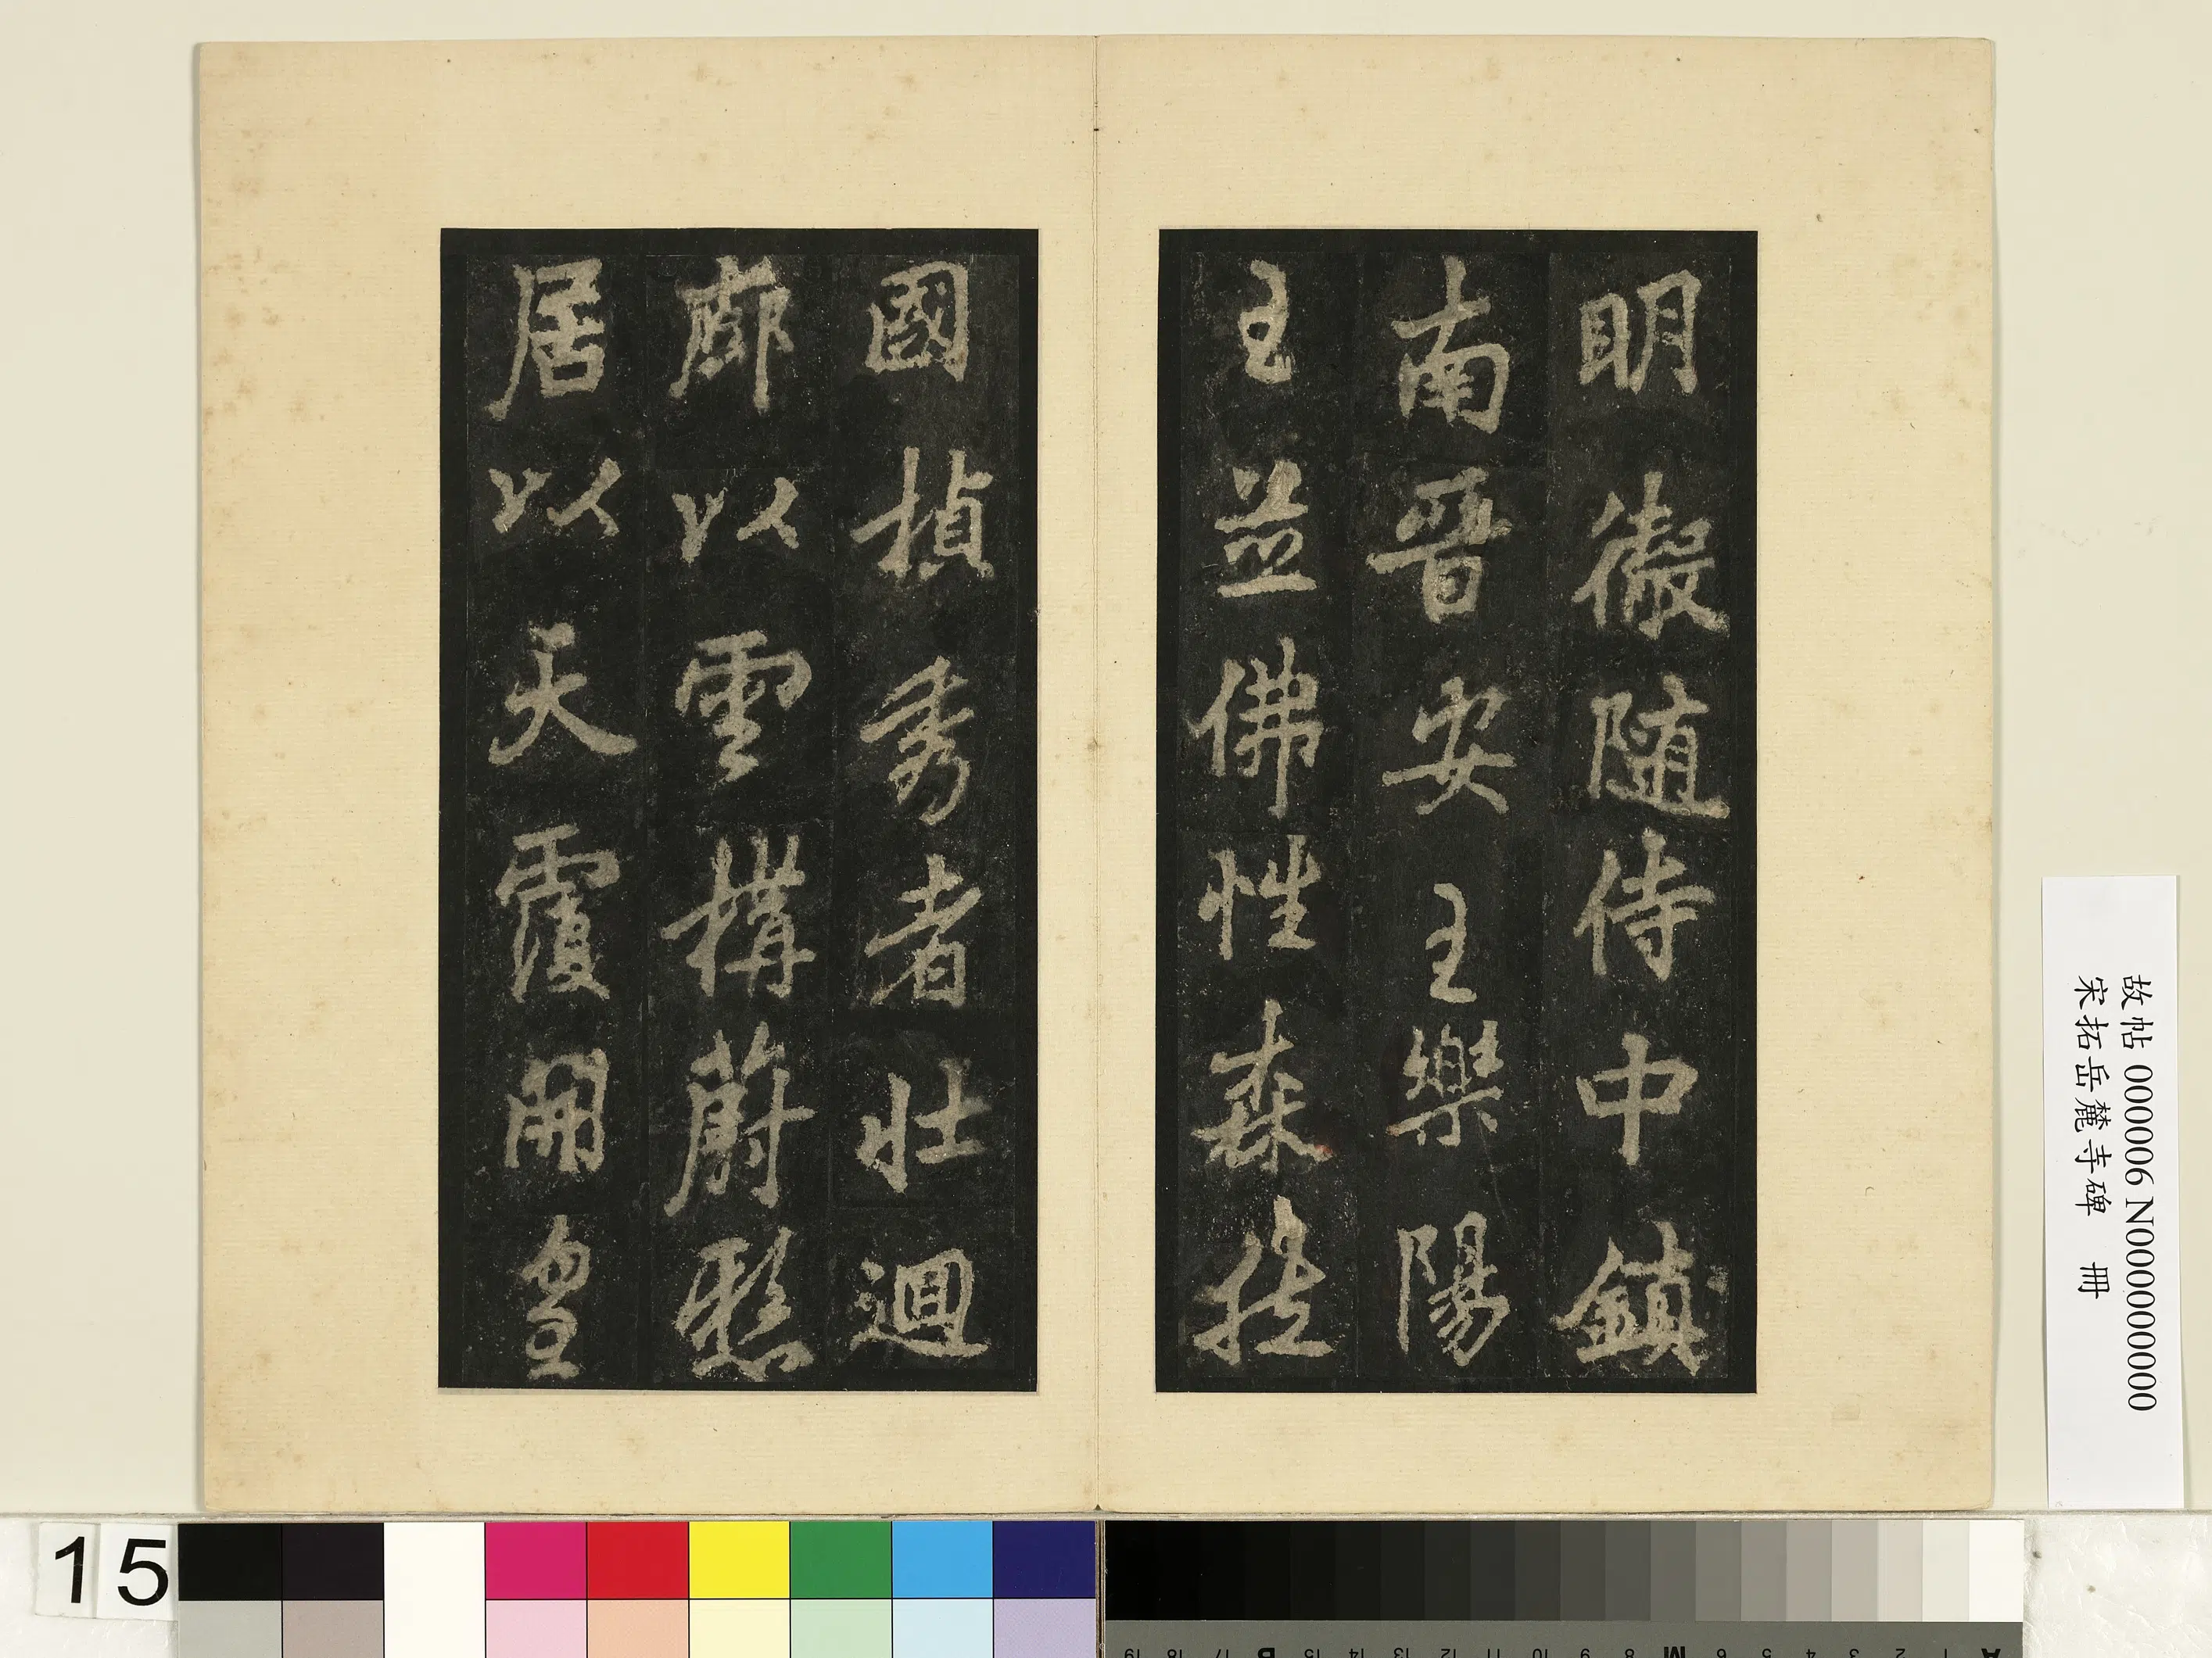 明徵隨侍中鎮
南晉安王樂陽
王並佛性森挺
國楨秀者壯迴
廊以雲構蔚懸
居以天覆開皇
故帖 000006 N000000000
宋拓岳麓寺碑 冊
15